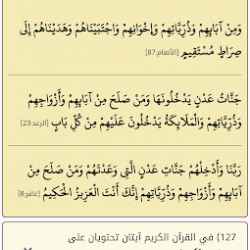 وَمِنْ آبَائِهِمْ وَذُرِّيَّاتِهِمْ وَإِخْوَانِهِمْ وَاجْتَبَيْنَاهُمْ وَهَدَيْنَاهُمْ إِلَى
صِرَاطٍ مُسْتَقِيمٍ [الأنعام:87]
جَنَّاتُ عَدْنٍ يَدْخُلُونَهَا وَمَنْ صَلَحَ مِنْ آبَائِهِمْ وَأَزْوَاجِهِمْ
وَذُرِّيَّاتِهِمْ وَالْمَلَائِكَةُ يَدْخُلُونَ عَلَيْهِمْ مِنْ كُلِّ بَابٍ [الرعد:23]
رَبَّنَا وَأَدْخِلْهُمْ جَنَّاتِ عَدْنٍ الَّتِي وَعَدْتَهُمْ وَمَنْ صَلَحَ مِنْ
آبَائِهِمْ وَأَزْوَاجِهِمْ وَذُرِّيَّاتِهِمْ إِنَّكَ أَنْتَ الْعَزِيزُ الْحَكِيمُ [غافر:8]
127) في القرآن الكريم آيتان تحتويان على